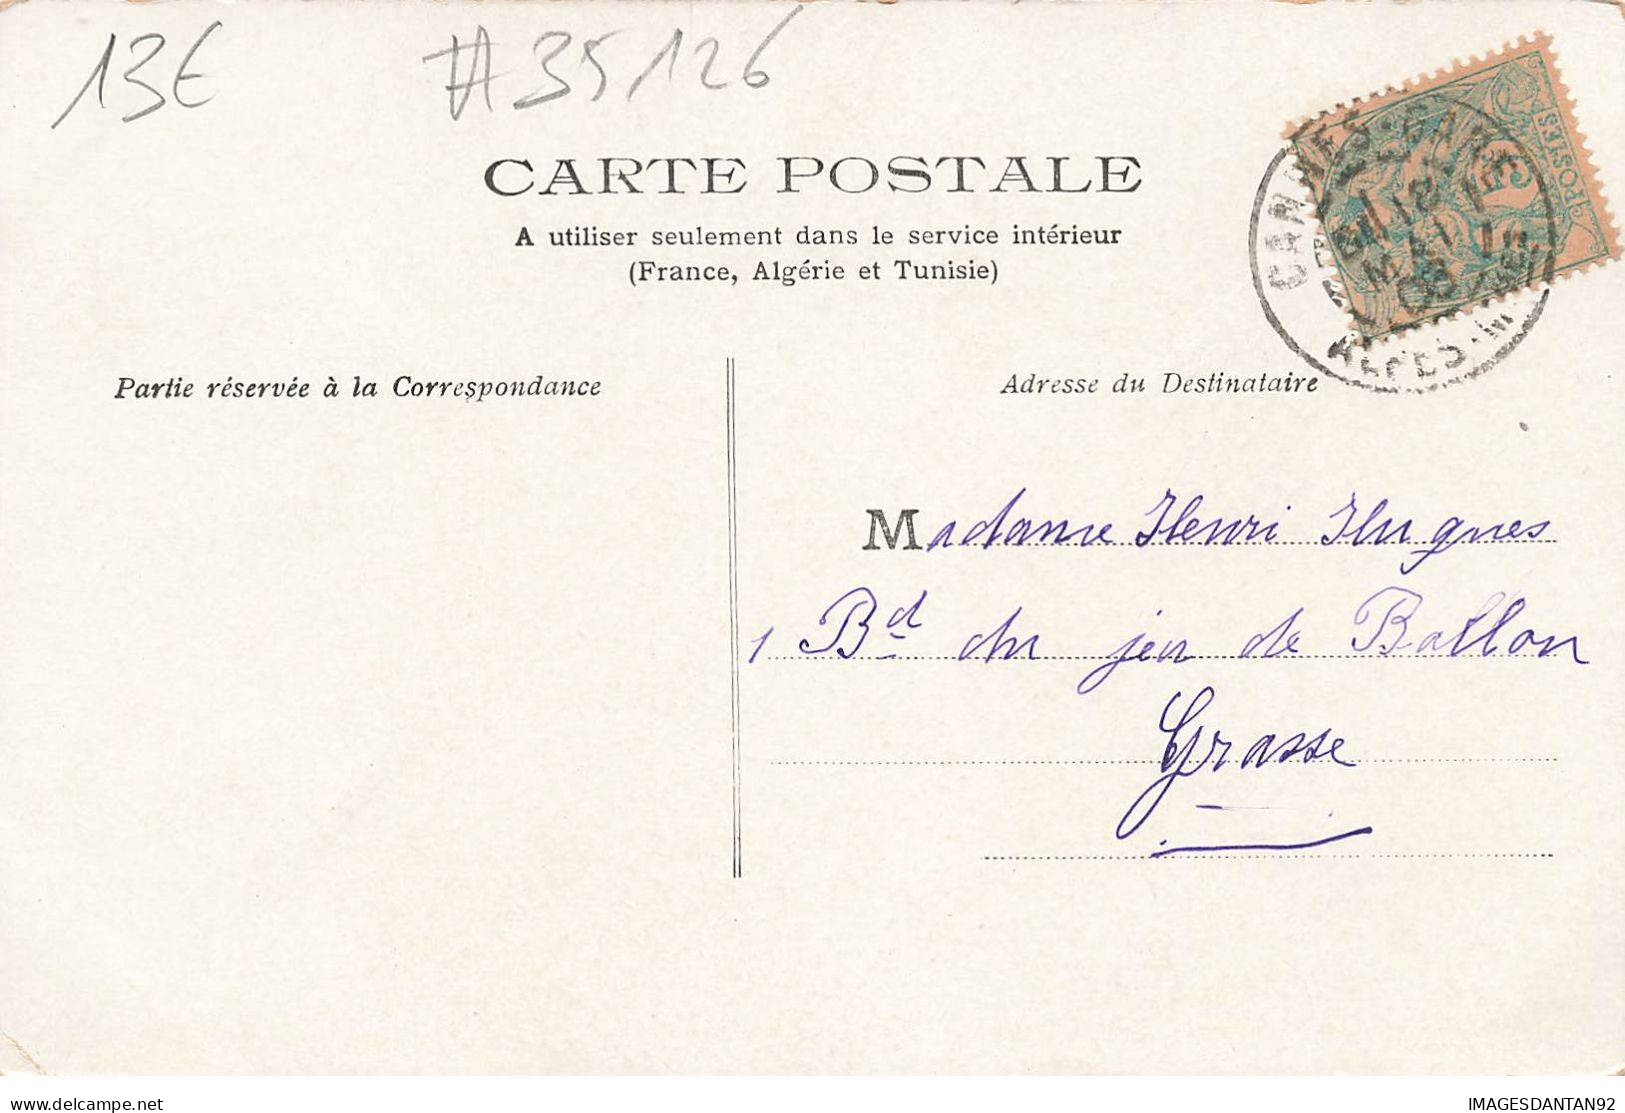 13€ #35126
CARTE POSTALE
A utiliser seulement dans le service intérieur
(France, Algérie et Tunisie)
CANNES-GARE
MAI
ALPES-M
POSTES
5
Partie réservée à la Correspondance
Adresse du Destinataire
Madame Henri Hugues
1 Bd du jeu de Ballon
Grasse
delcampe.net
IMAGESDANTAN92